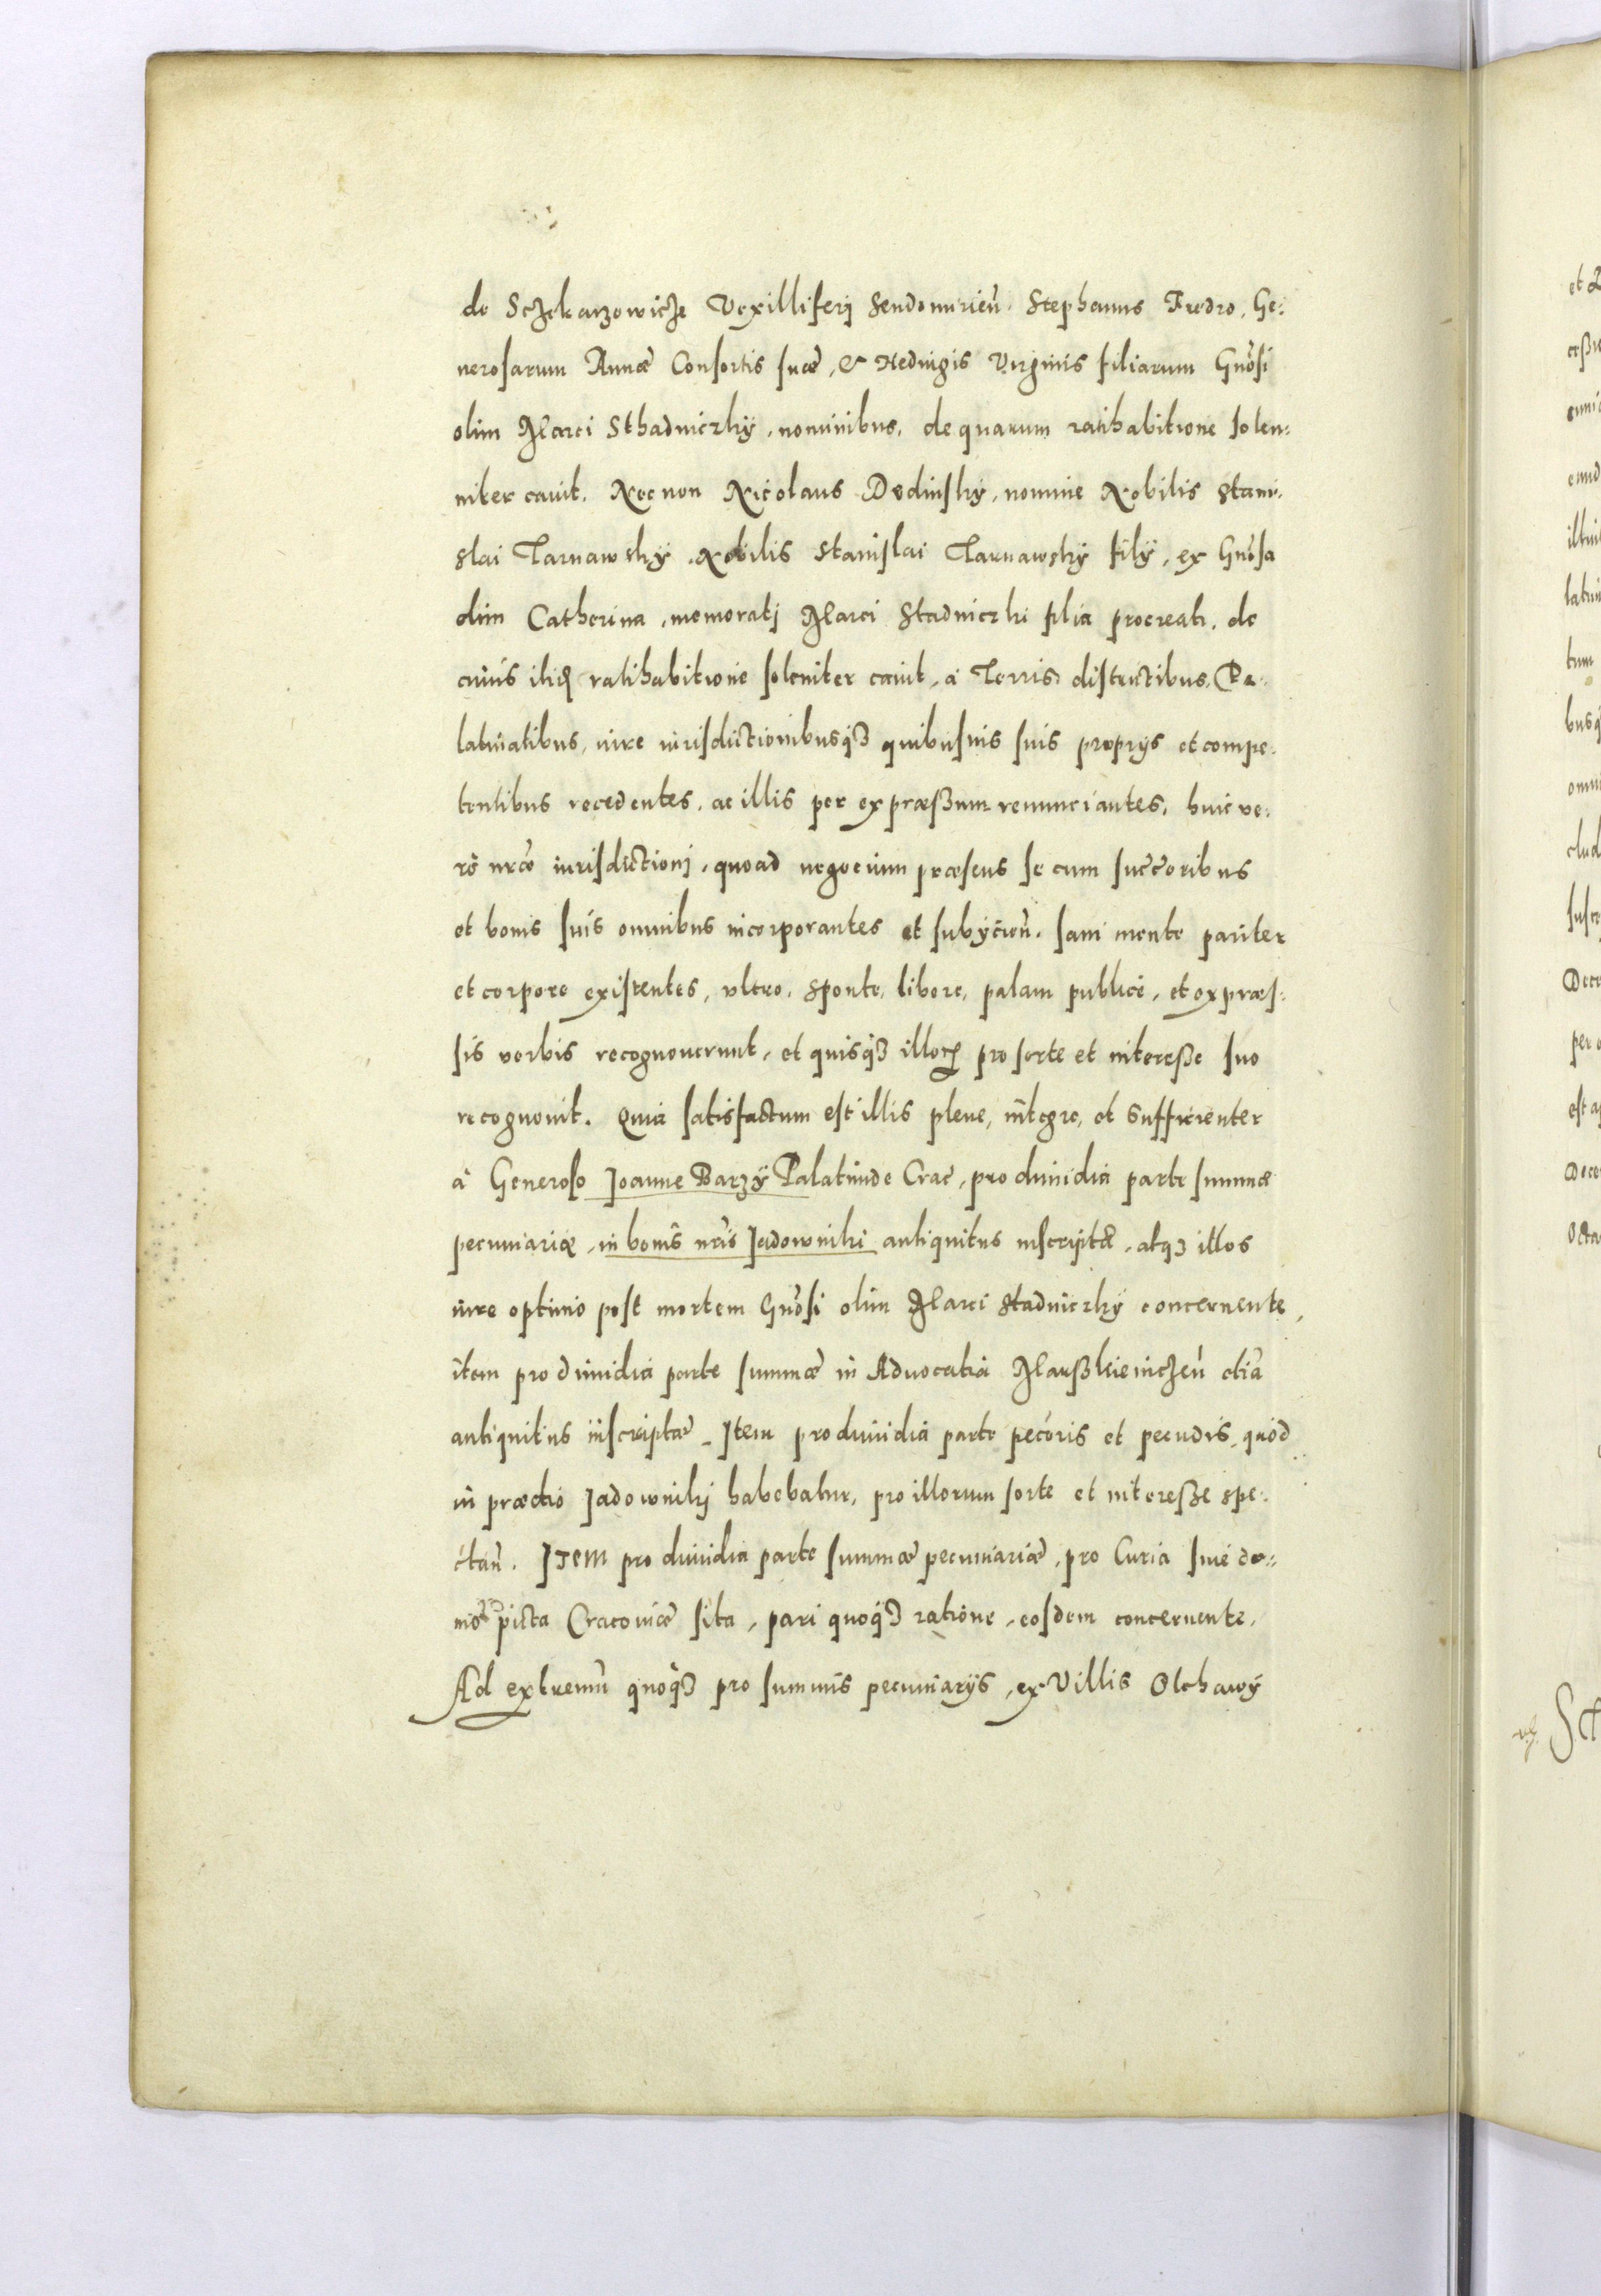 de Sczekarzowicze Vexilliferj Sendomirien̄. Stephanus Fredro, Ge:
nerosarum Annæ Consortis suæ, & Heduigis Virginis filiarum Gnōsi
olim Marci Sthadniczkÿ, nominibus, de quarum ratihabitione solen:
niter cauit. Necnon Nicolaus Dedinskÿ, nomine Nobilis Stani:
slai Tarnawskÿ, Nobilis Stanislai Tarnawskÿ filÿ, ex Gnōsa
olim Catherina, memoratj Marci Stadniczki filia procreati, de
cuius itid̄ ratihabitione soleniter cauit, à Terris, districtibus, Pa:
latinatibus, iure iurisdictionibusqȝ quibusuis suis proprÿs et compe:
tentibus recedentes, ac illis per expræßum renunciantes, huic ve:
rò nr̄æ iurisdictionj, quoad negocium præsens se cum succ̄oribus
et bonis suis omnibus incorporantes et subÿcien̄. sani mente pariter
et corpore existentes, vltro, sponte, libere, palam publicè, et expræs:
sis verbis recognouerunt, et quisqȝ illorꝝ pro sorte etintereße suo
recognouit. Quia satisfactum est illis plene, integre, et sufficienter
à Generoso Joanne Barzÿ Palatinide Crac̄, pro dimidia parte summæ
pecuniariæ, in bonis nr̄is Jadowniki antiquitus inscriptæ, atqȝ illos
iure optimo post mortem Gnōsi olim Marci Stadniczkÿ concernente,
item pro dimidia parte summæ in Aduocatia Maußkieniczen̄ etiā
antiquitus inscriptæ. Item pro dimidia parte pecoris et pecudis, quòd
in prædio Jadownikj habebatur, pro illorum sorte et intereße spe:
ctan̄. ITEM pro dimidia parte summæ pecuniariæ, pro Curia siue do::
mo picta Cracouiæ sita, pari quoqȝ ratione, eosdem concernente.
Ad extremū quoqȝ pro summis pecuniarÿs, ex Villis Olchawÿ